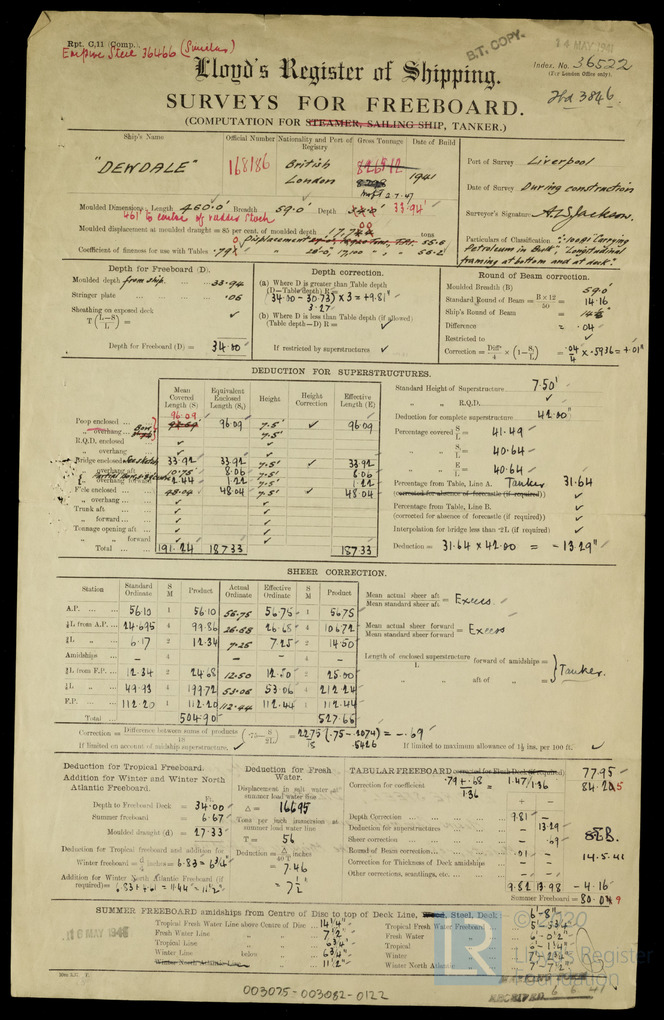 Rpt. C.11 (Comp.).
Empire Steel 36466 (Similar)
B.T. COPY.
14 MAY 1941
Index. No. 36522
(For London Office only).
Lloyd's Register of Shipping.
SURVEYS FOR FREEBOARD.
(COMPUTATION FOR STEAMER, SAILING SHIP, TANKER.)
Ship's Name
Official Number
Nationality and Port of Registry
Gross Tonnage
Date of Build
"DEWDALE"
168186
British
London
1941
Port of Survey Liverpool
Date of Survey During construction
Surveyor's Signature A.L. Jackson.
Particulars of Classification +100A1 Carrying Petroleum in Bulk", "Longitudinal framing at bottom and at deck".
Moulded Dimensions: Length 460.0' Breadth 59.0' Depth 33.94'
461' to centre of rudder stock
Moulded displacement at moulded draught = 85 per cent. of moulded depth tons
Coefficient of fineness for use with Tables
Depth for Freeboard (D).
Moulded depth from ship. 33.94
Stringer plate .06
Sheathing on exposed deck
T (L-S/L) =
Depth for Freeboard (D) = 34.00
Depth correction.
(a) Where D is greater than Table depth
(D—Table depth) R =
(34.00 - 30.73) × 3 = +9.81"
3.27
(b) Where D is less than Table depth (if allowed)
(Table depth—D) R =
If restricted by superstructures
Round of Beam correction.
Moulded Breadth (B) 59.0
Standard Round of Beam = B×12/50 = 14.16
Ship's Round of Beam =
Difference = .04
Restricted to
Correction = Diff/4 × (1-S/L) = .04/4 × .5936 = +.01"
DEDUCTION FOR SUPERSTRUCTURES.
Mean Covered Length (S)
Equivalent Enclosed Length (S₁)
Height
Height Correction
Effective Length (E)
Poop enclosed 96.09 96.09 7.5' 96.09
" overhang 7.5'
R.Q.D. enclosed
" overhang
Bridge enclosed See sketch 33.92 33.92 7.5' 33.92
" overhang aft 10.75 8.06 7.5' 8.06
" overhang forward 2.44 1.22 7.5' 1.22
F'cle enclosed 48.04 48.04 7.5' 48.04
" overhang
Trunk aft
" forward
Tonnage opening aft
" " forward
Total 191.24 187.33 187.33
Standard Height of Superstructure 7.50'
" " R.Q.D.
Deduction for complete superstructure 42.00"
Percentage covered S/L = 41.49
" S₁/L = 40.64
" E/L = 40.64
Percentage from Table, Line A. Tanker 31.64
(corrected for absence of forecastle (if required))
Percentage from Table, Line B.
(corrected for absence of forecastle (if required))
Interpolation for bridge less than ·2L (if required)
Deduction = 31.64 × 42.00 = -13.29"
SHEER CORRECTION.
Station
Standard Ordinate
S M
Product
Actual Ordinate
Effective Ordinate
S M
Product
A.P. 56.10 1 56.10 56.75 56.75 1 56.75
⅙L from A.P. 24.695 4 99.86 26.68 26.68 4 106.72
⅓L " 6.17 2 12.34 7.25 7.25 2 14.50
Amidships - 4 - - - 4 -
⅓L from F.P. 12.34 2 24.68 12.50 12.50 2 25.00
⅙L " 49.93 4 199.72 53.06 53.06 4 212.24
F.P. 112.20 1 112.20 112.44 112.44 1 112.44
Total 504.90 527.66
Mean actual sheer aft / Mean standard sheer aft = Excess.
Mean actual sheer forward / Mean standard sheer forward = Excess
Length of enclosed superstructure / L forward of amidships =
" " aft of " =
Tanker.
Correction = Difference between sums of products / 18 (·75 - S/2L) = 22.75/18 (.75 - .2074) = -.69
.5426
If limited on account of midship superstructure.
If limited to maximum allowance of 1½ ins. per 100 ft.
Deduction for Tropical Freeboard.
Addition for Winter and Winter North Atlantic Freeboard.
Ft.
Depth to Freeboard Deck = 34.00
Summer freeboard = 6.67
Moulded draught (d) = 27.33
Deduction for Tropical freeboard and addition for
Winter freeboard = d/4 inches = 6.83 = 6¾"
Addition for Winter North Atlantic Freeboard (if required) = 6.83 + 4.61 = 11.44 = 11½"
Deduction for Fresh Water.
Displacement in salt water at summer load water line
Δ = 16695
Tons per inch immersion at summer load water line
T = 56
Deduction = Δ/40T inches
= 7.46
= 7½"
TABULAR FREEBOARD corrected for Flush Deck (if required) 77.95
Correction for coefficient .79 + .68 / 1.36 = 1.47/1.36
+ -
Depth Correction 9.81 -
Deduction for superstructures - 13.29
Sheer correction - .69
Round of Beam correction .01 -
Correction for Thickness of Deck amidships - -
Other corrections, scantlings, etc. - -
9.82 13.98 -4.16
Summer Freeboard =
14.5.41
SUMMER FREEBOARD amidships from Centre of Disc to top of Deck Line, Wood, Steel, Deck 6'-8"
Tropical Fresh Water Line above Centre of Disc 14¼"
Fresh Water Line " " 7½"
Tropical Line " " 6¾"
Winter Line below " 6¾"
Winter North Atlantic Line " " 11½"
Tropical Fresh Water Freeboard 5'-5¾"
Fresh Water " 6'-0½"
Tropical " 6'-1¼"
Winter " 7'-2¾"
Winter North Atlantic " 7'-7½"
16 MAY 1941
RECEIVED 6.6.41
© 2020
LR
Lloyd's Register
Foundation
003075-003082-0122